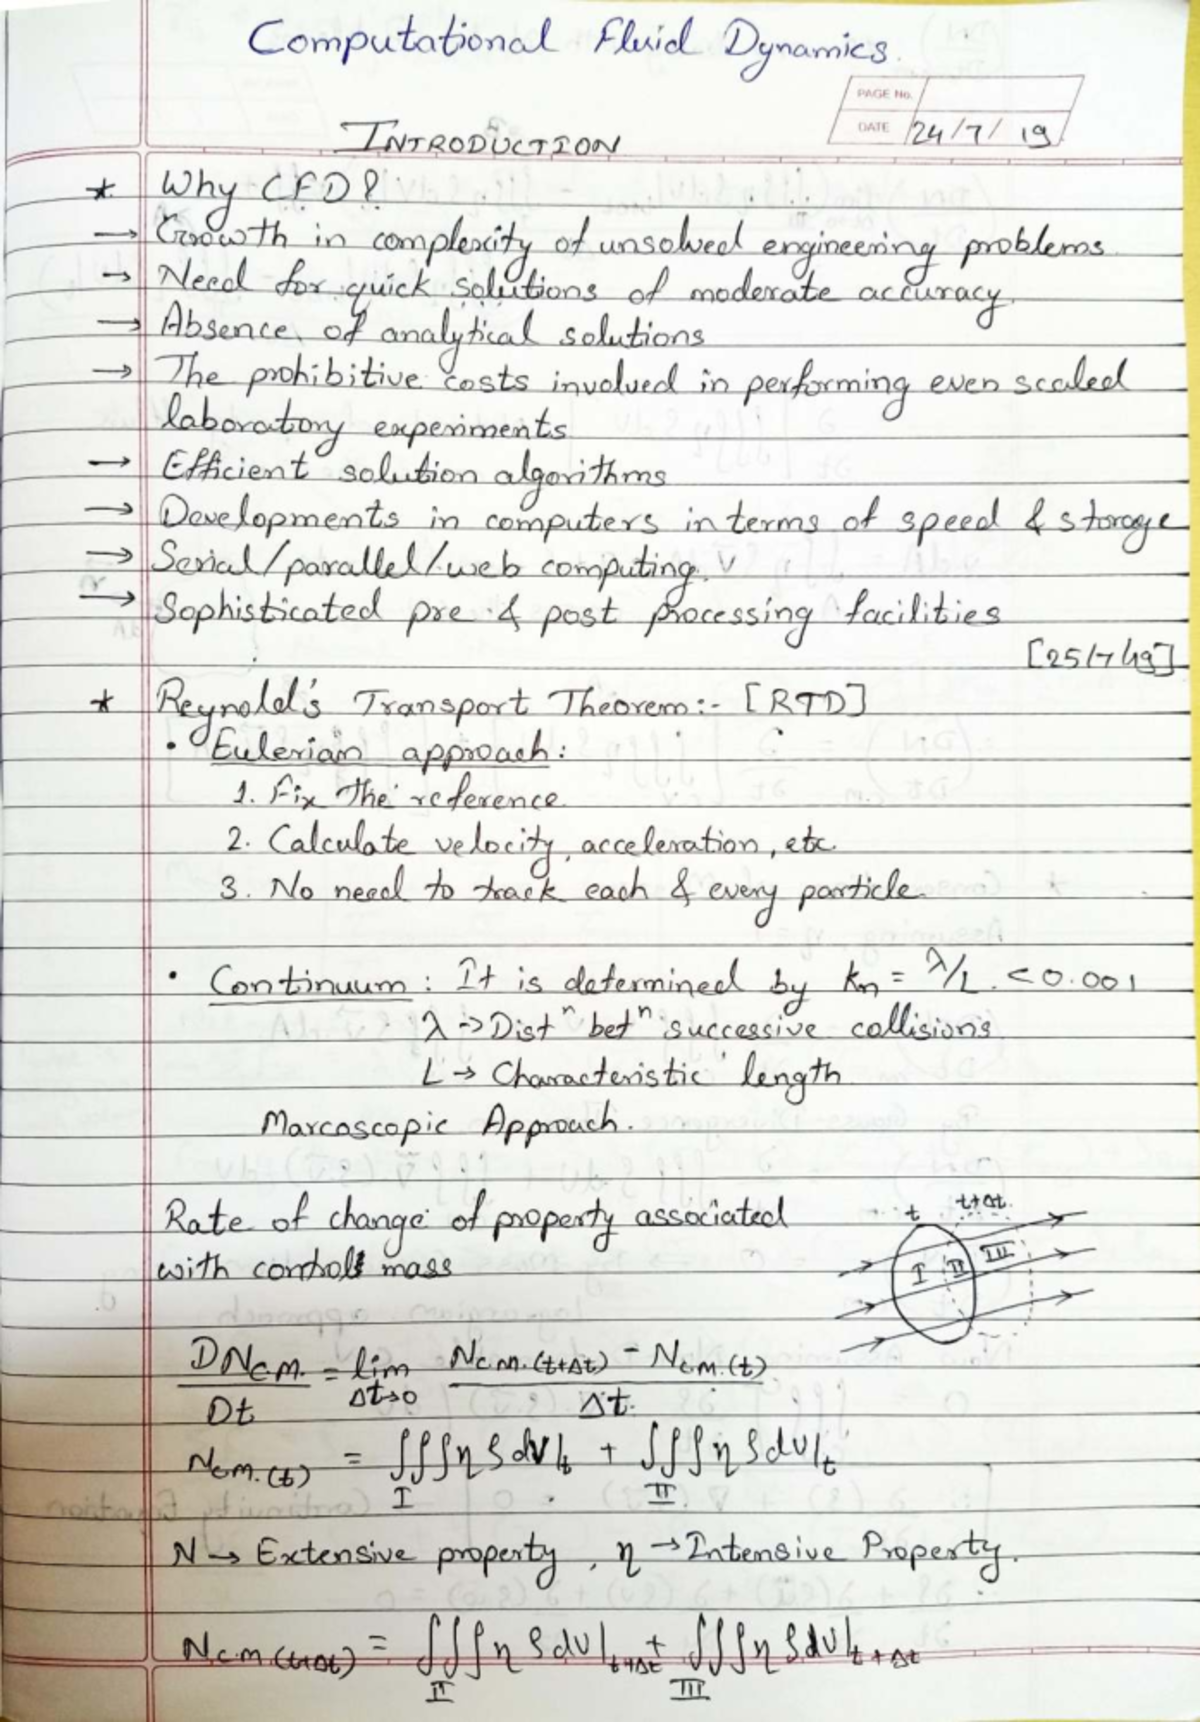 Computational Fluid Dynamics.
PAGE No.
DATE 24/7/19
INTRODUCTION
* Why CFD?
→ Growth in complexity of unsolved engineering problems
→ Need for quick solutions of moderate accuracy.
→ Absence of analytical solutions
→ The prohibitive costs involved in performing even scaled
laboratory experiments
→ Efficient solution algorithms
→ Developments in computers in terms of speed & storage
→ Serial/parallel/web computing.
→ Sophisticated pre & post processing facilities
[25/7/19]
* Reynold's Transport Theorem:- [RTD]
• Eulerian approach:
1. Fix the reference
2. Calculate velocity, acceleration, etc.
3. No need to track each & every particle
• Continuum : It is determined by kn = λ/L. <0.001
λ → Distⁿ betⁿ successive collisions
L → Characteristic length
Marcoscopic Approach.
Rate of change of property associated
with control mass
t t+Δt
I II III
DN_C.M./Dt = lim Δt→0 (N_C.M.(t+Δt) - N_C.M.(t))/Δt.
N_C.M.(t) = ∭_I ηρdV|_t + ∭_II ηρdV|_t
N → Extensive property, η → Intensive Property.
N_C.M.(t+Δt) = ∭_II ηρdV|_t+Δt + ∭_III ηρdV|_t+Δt